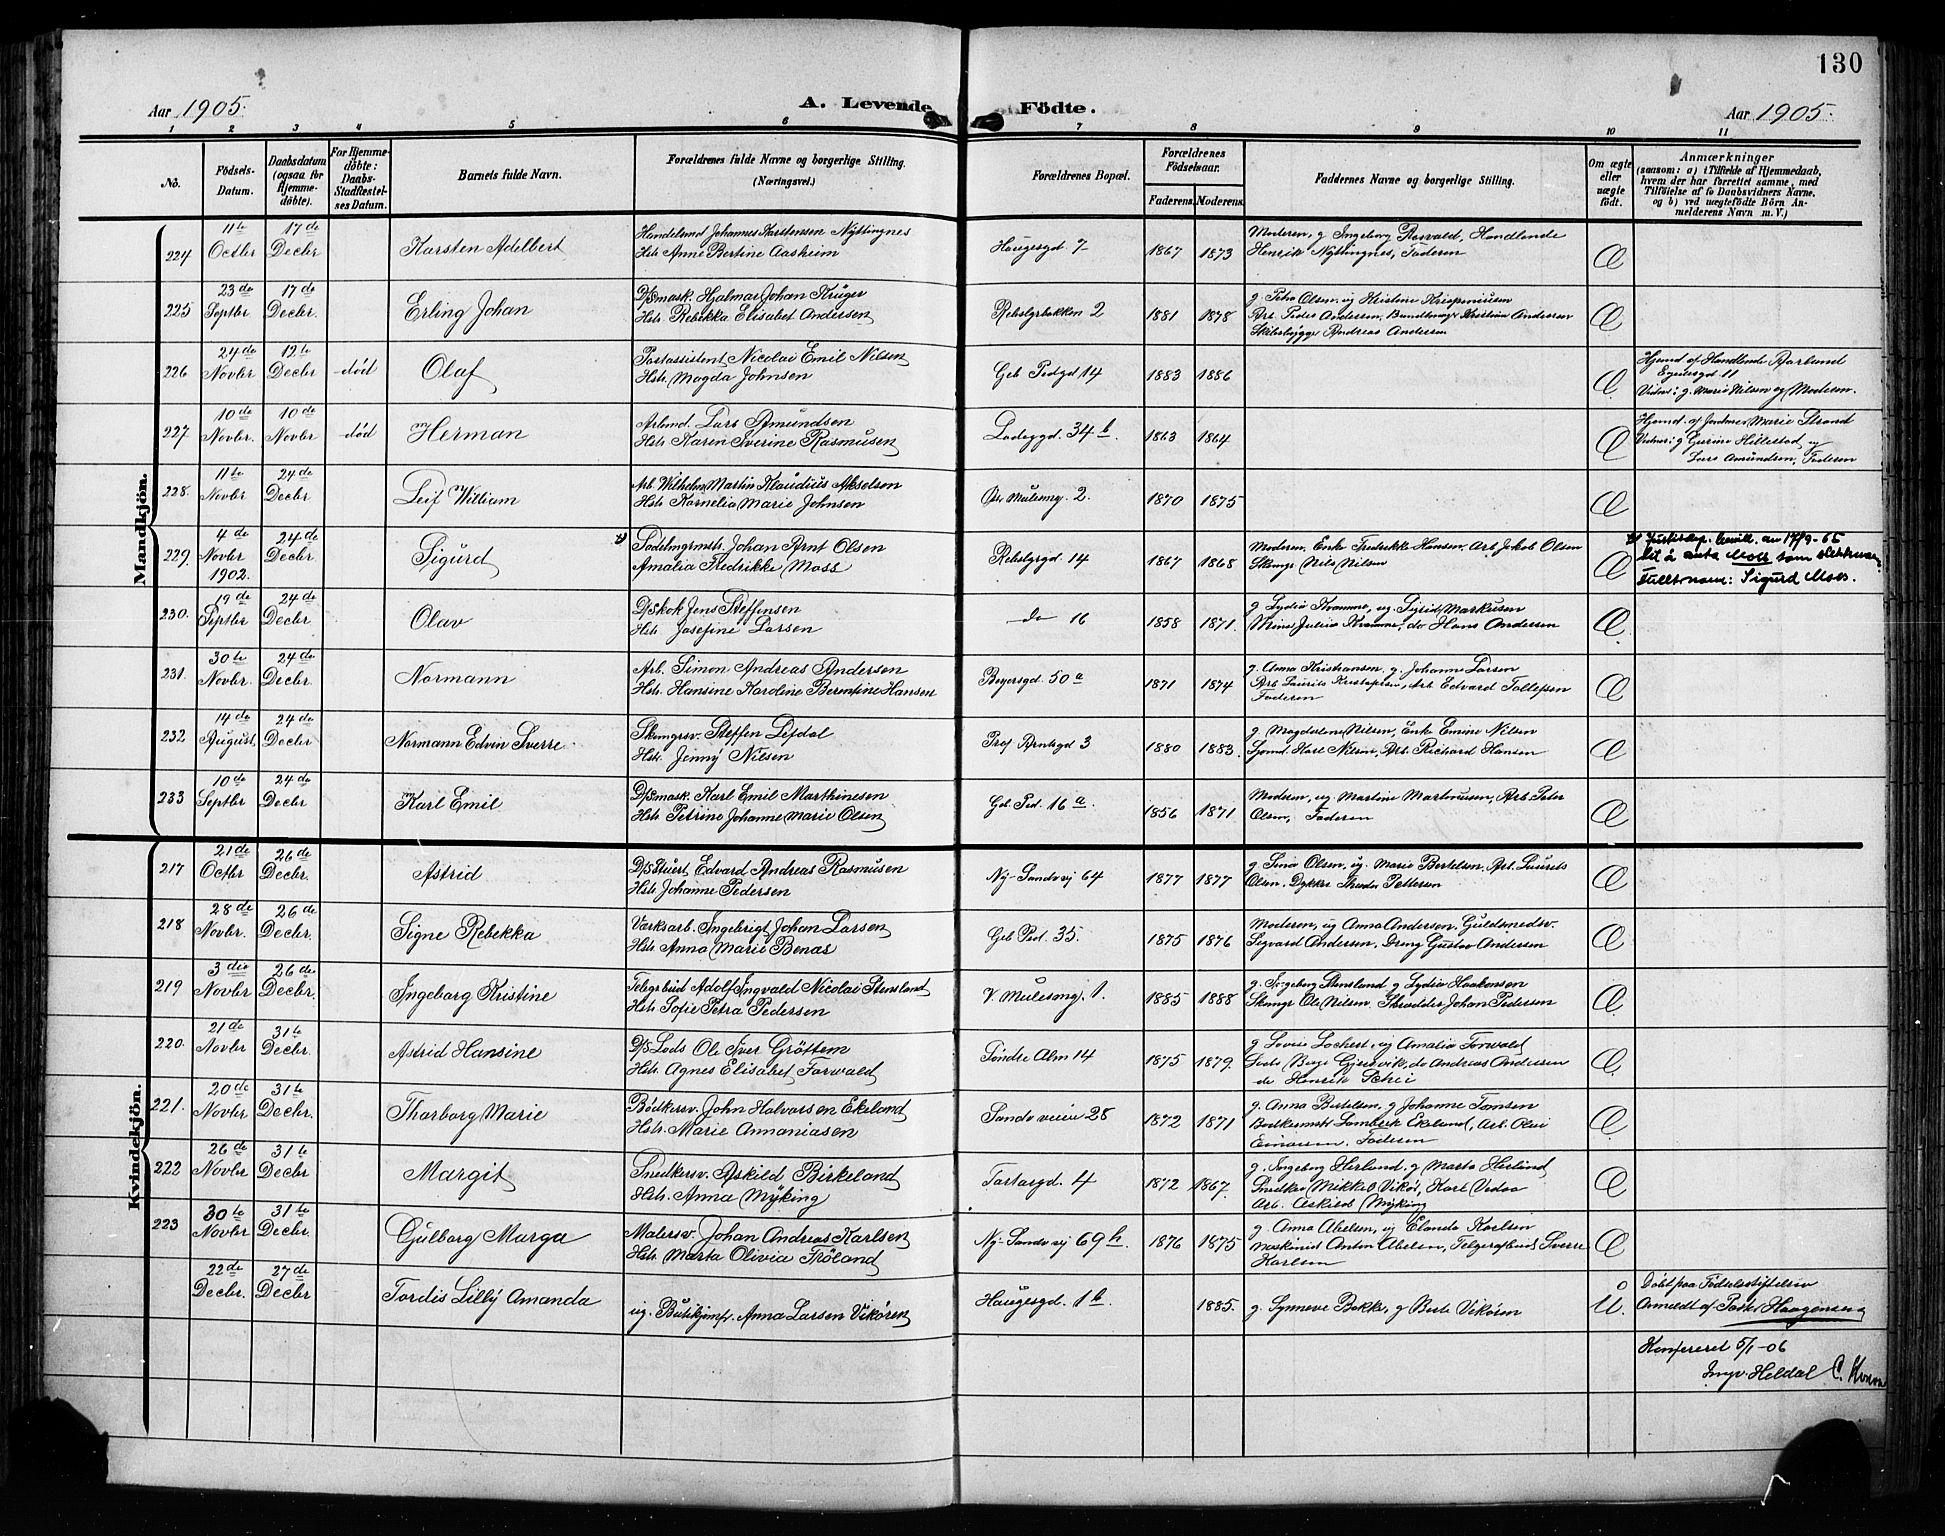 130
Aar 1905.
A. Levende Födte.
Aar 1905.
1 2 3 4 5 6 7 8 9 10 11
No.
Födsels-Datum.
Daabsdatum (ogsaa for Hjemme-döbte).
For Hjemme-döbte: Daabs-Stadfæstel-ses Datum.
Barnets fulde Navn.
Forældrenes fulde Navne og borgerlige Stilling.
(Næringsvei.)
Forældrenes Bopæl.
Forældrenes Födselsaar.
Faderens. Moderens.
Faddernes Navne og borgerlige Stilling.
Om ægte eller uægte födt.
Anmærkninger
(saasom: a) i Tilfælde af Hjemmedaab, hvem der har forrettet samme, med Tilföielse af to Daabsvidners Navne, og b) ved uægtefödte Börn An-melderens Navn m. V.)
Mandkjön.
224 11te Octbr 17de Decbr Karsten Adelbert
Handelsmd Johannes Karstensen Nyttingnes
Hstr. Anne Bertine Aasheim
Haugesgd 7 1867 1873
Moderen, g Ingeborg Roswald, Handlende
Henrik Nyttingnes, Faderen
Æ
225 23de Septbr 17de Decbr Erling Johan
D/Smask. Hjalmar Johan Krüger
Hstr. Rebekka Elisabet Andersen
Rebslgrbakken 2 1881 1878
g. Petra Olsen, ug Kristine
Arb. Peder Andersen, Kristian Andersen
Skibsbygge Andreas Andersen
Æ
226 24de Novbr 12te Decbr død Olaf
Postassistent Nicolai Emil Nilsen
Hstr. Magda Johnsen
Geb Pedgd 14 1883 1886
Æ
Hjemd af Handlende Aarland
Egesgd 11
Vidner: g. Marie Nilsen og Moderen.
227 10de Novbr. 10de Novbr død Herman
Arbmd. Lars Amundsen
Hstr Karen Sverine Rasmusen
Ladegd. 34 b. 1863 1864
Æ
Hjemd. af Jordmor Marie Strand
Vidner: g Gurine Hillestad og
Lars Amundsen, Faderen
228. 11te Novbr 24de Decbr Leif William
Arb. Wilhelm Martin Klaudius Akselsen
Hstr. Kornelia Marie Johnsen
Øv Mulesmg. 2. 1870 1875
Æ
229. 4de Novbr 1902. 24de Decbr Sigurd
Sadelmgrmstr. Johan Arnt Olsen
Amalia Fredrikke Moss
Rebslgrgd. 14 1867 1868
Moderen, Enke Fredrikke Hansen, Arb Jakob Olsen
Skomgr Nils Nilsen
Æ
Justisdep. bevill. av 17/9-65
til å anta Moss som slektsnavn.
Fullt navn: Sigurd Moss.
230. 19de Septbr 24de Decbr Olav
D/Skok Jens Steffensen
Hstr Josefine Larsen
do 16 1858 1871.
g Lydia Kvamme, ug. Sigrid Markusen
Julius Kvamme, do Hans Andersen
Æ
231. 30te Novbr. 24de Decbr. Normann
Arb. Simon Andreas Andersen
Hstr. Hansine Karoline Berntine Hansen
Beyersgd. 50 a 1871 1874
g. Anna Kristiansen, g. Johanne Larsen
Arb Laurits Kristofersen, Arb Edvard Tollefsen
Faderen
Æ
232 14de August 24de Decbr Normann Edvin Sverre
Skomgrsv. Steffen Lefdal
Hstr. Jenny Nilsen
Prof Arntsgd 3 1880 1883.
g. Magdalene Nilsen, Enke Emine Nilsen
Sjømd Karl Nilsen, Arb. Richard Hansen
Æ
233 10de Septbr 24de Decbr Karl Emil
D/Smask. Karl Emil Marthinesen
Hstr Petrine Johanne Marie Olsen
Geb. Ped. 16 a. 1856 1871
Moderen, ug. Martine Martinusen, Arb. Peter
Olsen, Faderen
Æ
Kvindekjön.
217 21de Octbr 26de Decbr. Astrid
D/SStuert Edvard Andreas Rasmusen
Hstr Johanne Pedersen
Ny-Sandvj 64 1877 1877
g. Sina Olsen, ug. Marie Bertelsen, Arb. Laurits
Olsen, Dykker Theodor Pettersen
Æ
218 28de Novbr. 26de Decbr. Signe Rebekka
Værksarb. Ingebrigt Johan Larsen
Hstr Anna Marie Benas
Geb Ped. 35. 1875 1876
Moderen, ug Anna Andersen, Guldsmedsv.
Sigvard Andersen, Dreng Gustav Andersen
Æ
219 3die Novbr 26de Decbr. Ingeborg Kristine
Telegrbud Adolf Ingvald Nicolai Stensland
Hstr Sofie Petra Pedersen
V. Mulesmg. 1. 1885 1888
g. Ingeborg Stensland g Lydia Haakonsen
Skomgr Ole Nilsen, Skrædder Johan Pedersen
Æ
220. 21de Novbr 31te Decbr. Astrid Hansine
D/S Lods Ole Iver Gröttem
Hstr Agnes Elisabet Forwald
Søndre Alm 14 1875 1879.
g Lovise Lochert, ug Amalia Forwald
Lods Berge Gjersvik, do Andreas Andersen
do Henrik Schei
Æ
221. 20de Novbr 31te Decbr. Thorborg Marie
Bödkersv. John Halvorsen Ekeland
Hstr. Marie Annaniasen
Sandvveien 28 1872 1871
g. Anna Bertelsen, g Johanne Tomsen
Bødkermstr Lambert Ekeland, Arb. Olai
Einarsen, Faderen
Æ
222 26de Novbr 31te Decbr Margit
Snedkersv. Askild Birkeland
Hstr. Anna Myking
Tartargd. 4 1872 1867.
g. Ingeborg Herlund, g Marta Herlund
Snedker Mikkel Vikør, Karl Vedaa
Arb. Askild Myking
Æ
223 30te Novbr 31te Decbr Gulborg Marga
Malersv. Johan Andreas Karlsen
Hstr. Marta Olivia Fröland
Ny-Sandvj 69 h. 1876 1875
g. Anna Abelsen, ug Elanda Karlsen
Maskinist Anton Abelsen, Telegrafbud Sverre
Karlsen
Æ
22de Decbr. 27de Decbr Tordis Lilly Amanda
ug. Butikjmfr. Anna Larsen Vikøren
Haugesgd. 1 b. 1885.
g. Synneve Bakke, g Berte Vikøren
U.
Døbt paa Fødselsstiftelsen
Anmeldt af Haagensen
Konfereret 5/1-06
Ingv. Heldal